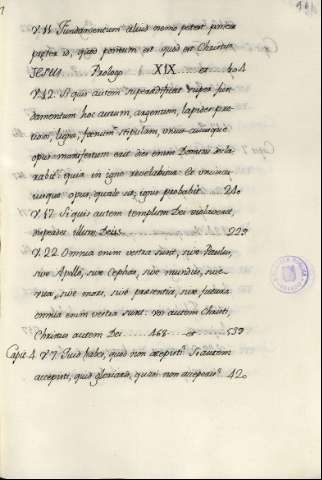 V. 11. Fundamentum aliud nemo potest ponere
præter id, quod positum est quod est Christus
JESUS. Prologo XIX et 404
V. 12. Si quis autem superædificat super fun-
damentum hoc aurum, argentum, lapides pre-
tiosos, ligna, fœnum stipulam, unius cuiusque
opus manifestum erit dies enim Domini decla-
rabit: quia in igne revelabitur. Et uniuscu-
iusque opus, quale sit, ignis probabit. 240
V. 17. Si quis autem templum Dei violaverit,
disperdet illum Deus. 229
V. 22. Omnia enim vestra sunt, sive Paulus,
sive Apollo, sive Cephas, sive mundus, sive
vita, sive mors, sive præsentia, sive futura
omnia enim vestra sunt: vos autem Christi,
Christus autem Dei 468 et 539
Capit. 4. V. 7. Quid habes, quod non accepisti? Si autem
accepisti, quid gloriaris, quasi non acceperis? 420